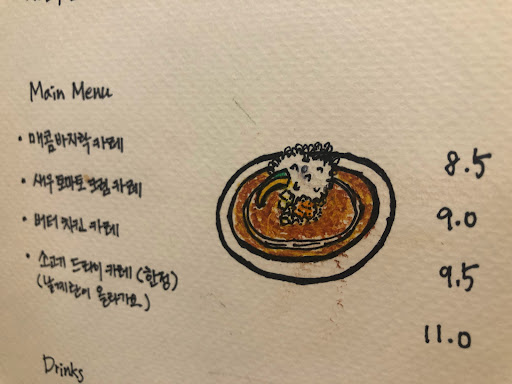 Main Menu
• 매콤바지락 카레 8.5
• 새우 토마토 크림 카레 9.0
• 버터 치킨 카레 9.5
• 소고기 드라이 카레 (한정) 11.0
(날계란이 올라가요)
Drinks